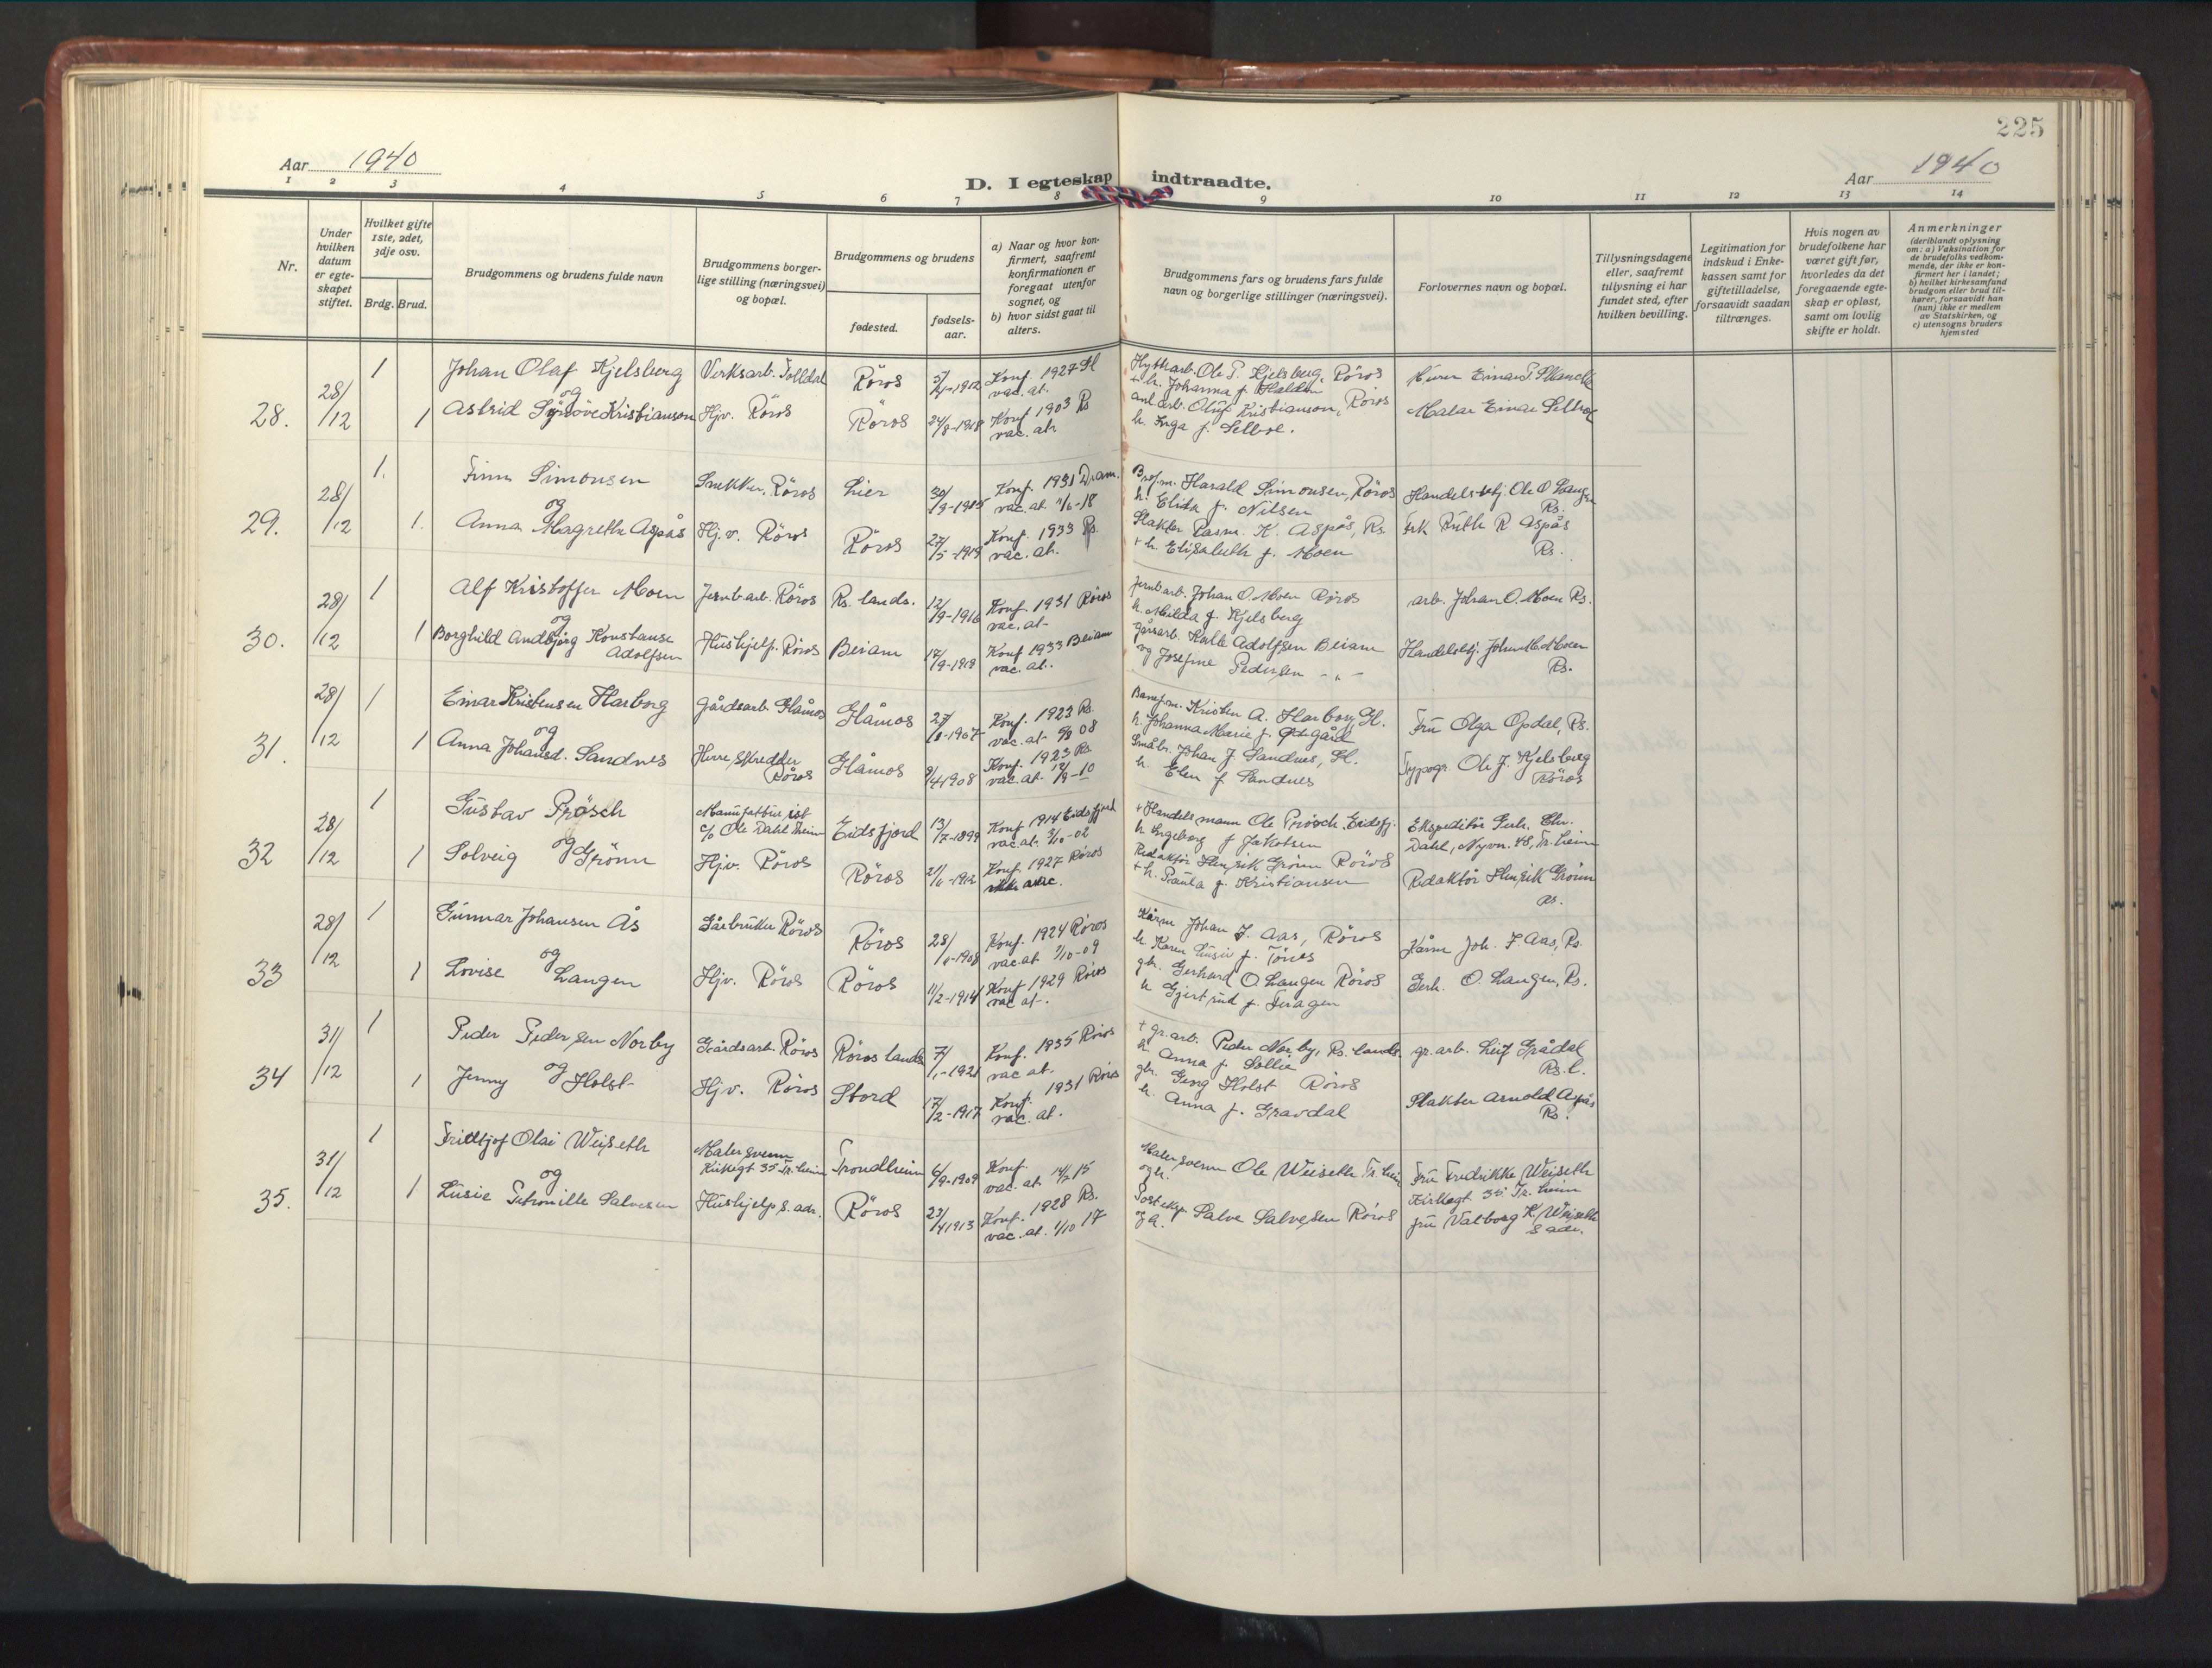 225
Aar 1940
D. I egteskap indtraadte.
Aar 1940
1 2 3 4 5 6 7 8 9 10 11 12 13 14
Nr.
Under hvilken datum er egteskapet stiftet.
Hvilket gifte 1ste, 2det, 3dje osv.
Brdg. Brud.
Brudgommens og brudens fulde navn
Brudgommens borgerlige stilling (næringsvei) og bopæl.
Brudgommens og brudens
fødested.
fødselsaar.
a) Naar og hvor konfirmert, saafremt konfirmationen er foregaat utenfor sognet, og
b) hvor sidst gaat til alters.
Brudgommens fars og brudens fars fulde navn og borgerlige stillinger (næringsvei).
Forlovernes navn og bopæl.
Tillysningsdagene eller, saafremt tillysning ei har fundet sted, efter hvilken bevilling.
Legitimation for indskud i Enkekassen samt for giftetilladelse, forsaavidt saadan tiltrænges.
Hvis nogen av brudefolkene har været gift før, hvorledes da det foregaaende egteskap er opløst, samt om lovlig skifte er holdt.
Anmerkninger
(deriblandt oplysning om: a) Vaksination for de brudefolks vedkommende, der ikke er konfirmert her i landet; b) hvilket kirkesamfund brudgom eller brud tilhører, forsaavidt han (hun) ikke er medlem av Statskirken, og c) utensogns bruders hjemsted
28. 28/12
1 Johan Olaf Kjelsberg Verksarb. Tolldal Röros 5/5-1912 Konf. 1927 Gl vac. at.
Hytteark. Ole P. Kjelsberg, Röros
+ h. Johanna f. Halden
Einar T. Skancke
og
1 Astrid Synöve Kristianson Hjv. Röros Röros 24/8-1918 Konf 1903 Rs vac. at.
anl. arb. Oluf Kristianson, Röros
h. Inga f. Selboe.
Malar Einar Selboe
29. 28/12
1. Finn Simonsen Snekker, Röros Lier 30/9-1915 Konf. 1931 Dram. vac. at. 1/6-18
Harald Simonsen, Röros
h. Elida f. Nilsen
Handelsbtj. Ole O Langen Rs.
og
1. Anna Magrethe Aspås Hj.v. Röros Röros 27/5-1919 Konf. 1933 Rs. vac. at.
Slakter Rasm. K. Aspås, Rs.
+ h. Elisabeth f. Moen
frk Ruth R Aspås Rs.
30. 28/12
1 Alf Kristoffer Moen Jernb.arb. Röros Rs. lands. 12/9-1916 Konf. 1931 Röros vac. at.
Jernb.arb. Johan O. Moen Röros
h. Milda f. Kjelsberg
arb. Johan O. Moen Rs.
og
1 Borghild Andbjørg Konstanse Adolfsen Hushjelp. Röros Beiarn 17/9-1918 Konf 1933 Beiarn vac. at.
Gårdarb. Kalle Adolfsen Beiarn
og Josefine Pedersen - " -
Handelsbtj. Johan M. Moen Rs.
31. 28/12
1 Einar Kristensen Harborg Gårdsarb. Glåmos Glåmos 27/8-1907 Konf. 1923 Rs. vac. at. 9/9 08
Kristen A. Harborg, Gl.
h. Johanna Marie f. Østgård
Fru Olga Opdal, Rs.
og
1 Anna Johansd. Sandnes Herre, Skredder Röros Glåmos 9/4 1908 Konf. 1923 Rs. vac. at. 12/9-10
Småbr. Johan J. Sandnes, Gl.
h. Elen f. Sandnes
Typogr. Ole J. Kjelsberg Röros
32 28/12
1 Gustav Prösch Manufakturist c/o Ole Dahl Tr.heim Eidsfjord 13/7-1899 Konf 1914 Eidsfjord vac. at. 3/10-02
+ Handelsmann Ole Prösch, Eidsfj.
h Ingeborg f Jakobsen
Ekspeditör Gerh. Chr. Dahl, Nyvn. 48, Tr.heim
og
1 Solveig Grönn Hjv. Röros Röros 21/6-1912 Konf. 1927 Röros ikke vac.
Redaktör Henrik Grönn Röros
+ h. Paula f. Kristiansen
Redaktör Henrik Grönn Rs.
33 28/12
1 Gunnar Johansen Ås Gårbruker Röros Röros 28/6-1908 Konf. 1924 Röros vac. at 1/10-09
Kårm Johan J. Aas, Röros
h. Karen Lusie f. Tönes
Kårm Joh. J Aas, Rs.
og
1 Lovise Langen Hjv. Röros Röros 11/2-1914 Konf 1929 Röros vac at-.
gbr. Gerhard O. Langen Röros
h Gjertrud f. Feragen
Gerh. O. Langen, Rs.
34 31/12
1 Peder Pedersen Norby Gårdsarb. Röros Röros lands 7/1-1921 Konf. 1935 Röros vac at.
+ gr.arb. Peder Norby, Rs. lands.
h. Anna f. Sollie
gr.arb. Leif Grådal Rs. l.
og
1 Jenny Holst Hjv. Röros Stord 17/2-1917 Konf. 1931 Röros vac. at.
gbr. Georg Holst Röros
h. Anna f. Gravdal
Slakter Arnold Aspås Rs.
35. 31/12
1 Frittjof Olai Weiseth Malersvenn Kirkegt 35 Tr.heim Trondheim 6/9-1909 Konf. vac. at. 14/7 15
Malersvenn Ole Weiseth Tr.heim
og h.
Fru Fredrikke Weiseth Kirkegt 35 Tr.heim
og
1 Lusie Petronille Salvesen Hushjelp, s. adr. Röros 23/4 1913 Konf. 1928 Rs. vac. at. 1/10 17
Posteksp. Salve Salvesen Röros
og h.
fru Valborg K. Weiseth s adr.